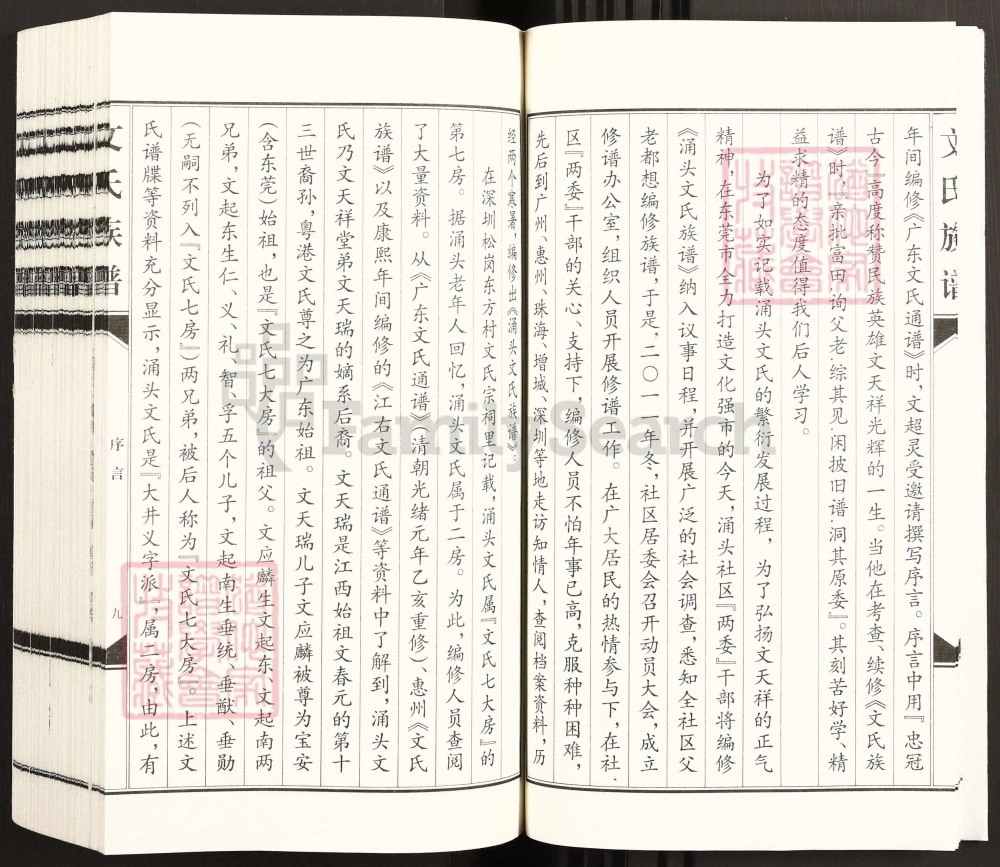 文氏族谱
年间编修《广东文氏通谱》时，文超灵受邀请撰写序言。序言中用『忠冠
古今』高度称赞民族英雄文天祥光辉的一生。当他在考查、续修《文氏族
谱》时，『亲批富田，询父老综其见，闲披旧谱，洞其原委』。其刻苦好学、精
益求精的态度值得我们后人学习。
为了如实记载涌头文氏的繁衍发展过程，为了弘扬文天祥的正气
精神，在东莞市全力打造文化强市的今天，涌头社区『两委』干部将编修
《涌头文氏族谱》纳入议事日程，并开展广泛的社会调查，悉知全社区父
老都想编修族谱，于是，二〇一一年冬，社区居委会召开动员大会，成立
修谱办公室，组织人员开展修谱工作。在广大居民的热情参与下，在社
区『两委』干部的关心、支持下，编修人员不怕年事已高，克服种种困难，
先后到广州、惠州、珠海、增城、深圳等地走访知情人，查阅档案资料，历
经两个寒暑，编修出《涌头文氏族谱》。
在深圳松岗东方村文氏宗祠里记载，涌头文氏属『文氏七大房』的
第七房。据涌头老年人回忆，涌头文氏属于二房。为此，编修人员查阅
了大量资料。从《广东文氏通谱》（清朝光绪元年乙亥重修）、惠州《文氏
族谱》以及康熙年间编修的《江右文氏通谱》等资料中了解到，涌头文
氏乃文天祥堂弟文天瑞的嫡系后裔。文天瑞是江西始祖文春元的第十
三世裔孙，粤港文氏尊之为广东始祖。文天瑞儿子文应麟被尊为宝安
（含东莞）始祖，也是『文氏七大房』的祖父。文应麟生文起东、文起南两
兄弟，文起东生仁、义、礼、智、孚五个儿子，文起南生垂统、垂猷、垂勋
（无嗣不列入『文氏七房』）两兄弟，被后人称为『文氏七大房』。上述文
氏谱牒等资料充分显示，涌头文氏是『大井义字派』，属二房，由此，有
文氏族谱
序言
九
FamilySearch